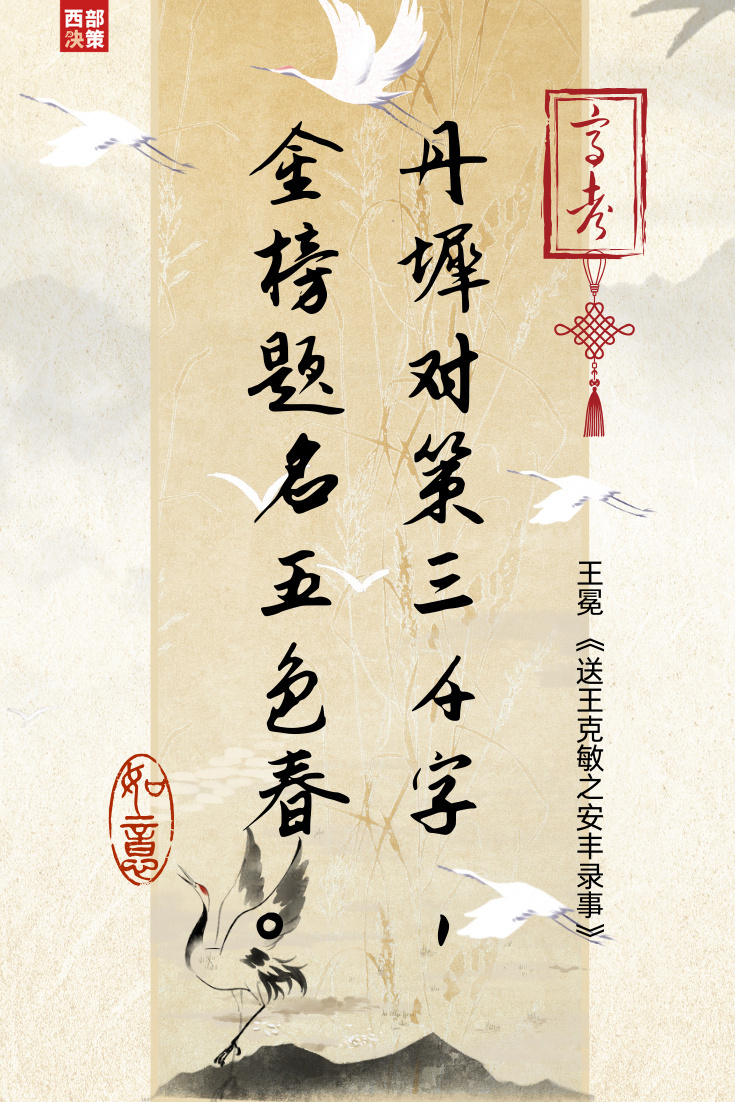 西部
决策
高考
丹墀对策三千字，
金榜题名五色春。
王冕《送王克敏之安丰录事》
如意